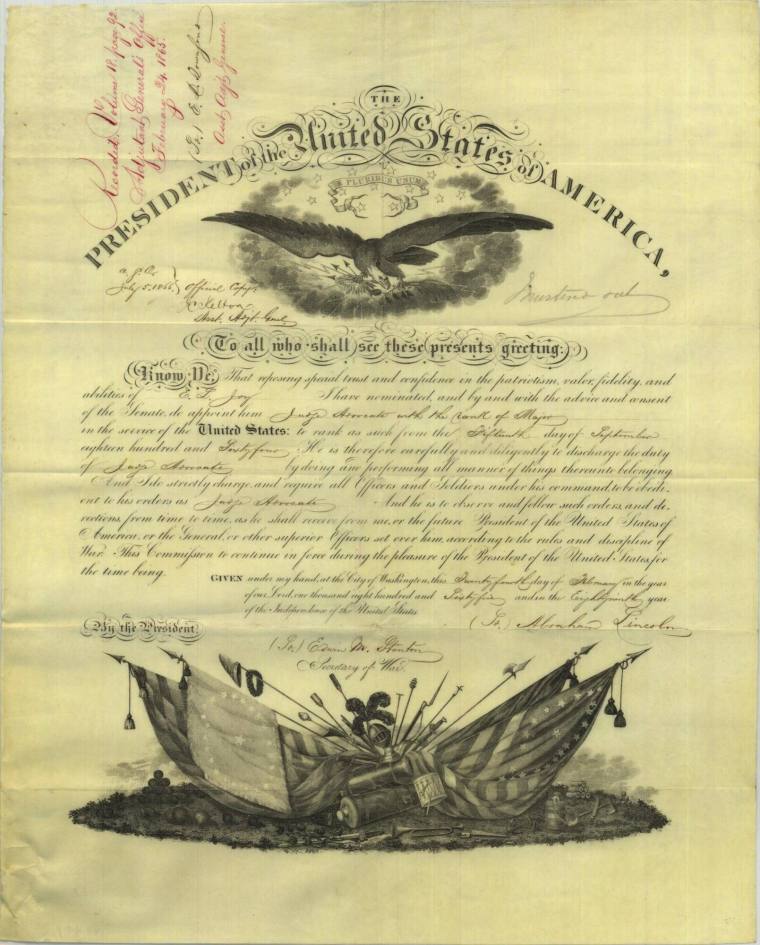 Recorded, Volume 18, page 92
Adjutant General's Office
February 24, 1865.
Asst. Adjt. General.
THE
PRESIDENT of the United States of AMERICA,
E PLURIBUS UNUM
A. G. O.
July 5. 1866. Official Copy.
Asst. Adjt. Genl.
Mustered out
To all who shall see these presents greeting:
Know Ye, That reposing special trust and confidence in the patriotism, valor, fidelity, and
abilities of E. L. Joy I have nominated, and by and with the advice and consent
of the Senate, do appoint him Judge Advocate with the rank of Major
in the service of the United States: to rank as such from the Fifteenth day of September
eighteen hundred and Sixty four. He is therefore carefully and diligently to discharge the duty
of Judge Advocate by doing and performing all manner of things thereunto belonging.
And I do strictly charge, and require all Officers and Soldiers under his command, to be obedi-
ent to his orders as Judge Advocate And he is to observe and follow such orders, and di-
rections, from time to time, as he shall receive from me, or the future President of the United States of
America, or the General, or other superior Officers set over him, according to the rules and discipline of
War. This Commission to continue in force during the pleasure of the President of the United States, for
the time being.
GIVEN under my hand, at the City of Washington, this Twenty fourth day of February in the year
of our Lord, one thousand eight hundred and Sixty five and in the Eighty ninth year
of the Independence of the United States.
By the President, (So.) Abraham Lincoln
(So.) Edwin M. Stanton
Secretary of War.